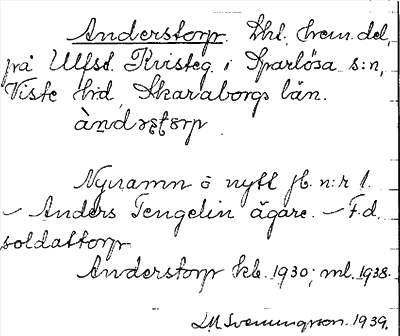 Anderstorp. Lht. hem.del,
frå Ulfst. Kvisteg. i Sparlösa s:n,
Viste hd, Skaraborgs län.
Nynamn å nytt jb. n:r 1.
— Anders Tengelin ägare. — F.d.
soldattorp
Anderstorp kb. 1930; ml. 1938.
1939.